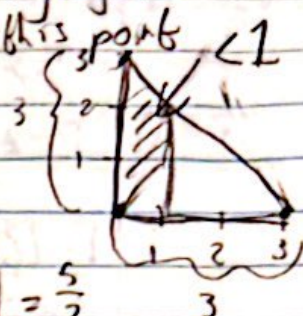 this point
3 <1
3 2
1
1 2 3
= 5/2 3